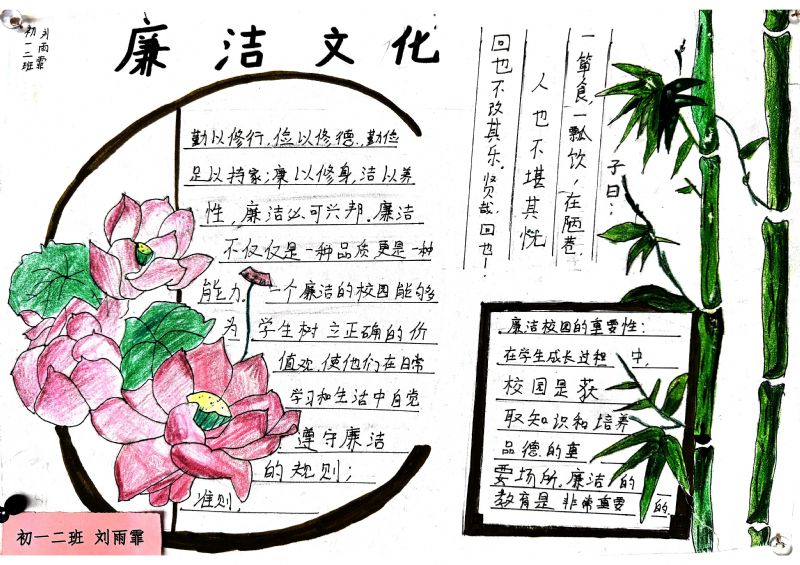 廉洁文化
初一二班
刘雨霏
勤以修行,俭以修德,勤俭
足以持家;廉以修身,洁以养
性,廉洁必可兴邦。廉洁
不仅仅是一种品质更是一种
能力。一个廉洁的校园能够
为学生树立正确的价
值观,使他们在日常
学习和生活中自觉
遵守廉洁
的规则;
准则。
子曰:
一箪食,一瓢饮,在陋巷.
人也不堪其忧
回也不改其乐。贤哉,回也!
廉洁校园的重要性:
在学生成长过程中,
校园是获
取知识和培养
品德的重
要场所。廉洁的
教育是非常重要的
初一二班 刘雨霏